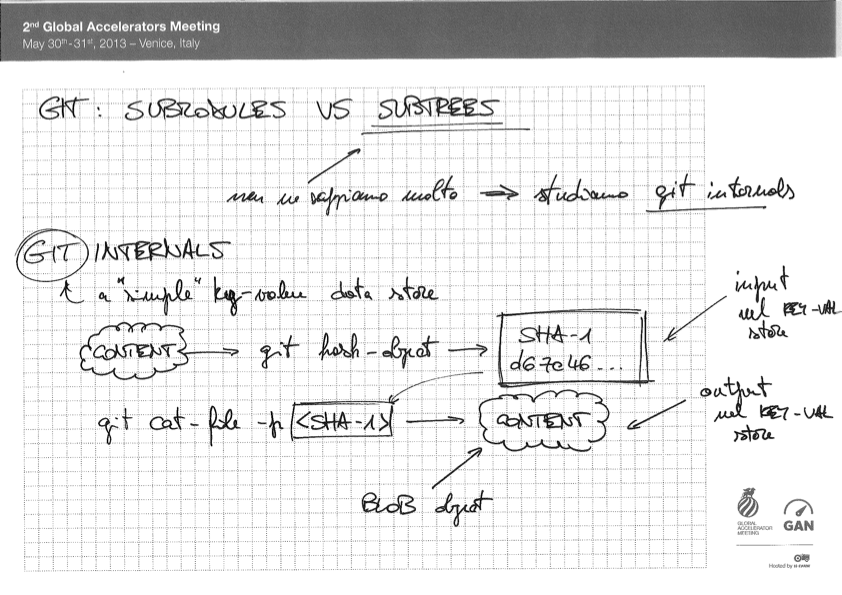 2nd Global Accelerators Meeting
May 30th-31st, 2013 – Venice, Italy
GIT: SUBMODULES VS SUBTREES
non ne sappiamo molto → studiamo git internals
GIT INTERNALS
è a "simple" key-value data store
input
nel KEY-VAL
store
CONTENT → git hash-object → SHA-1
d67e46...
git cat-file -p <SHA-1> → CONTENT
output
nel KEY-VAL
store
BLOB object
GLOBAL
ACCELERATOR
MEETING
GAN
Hosted by